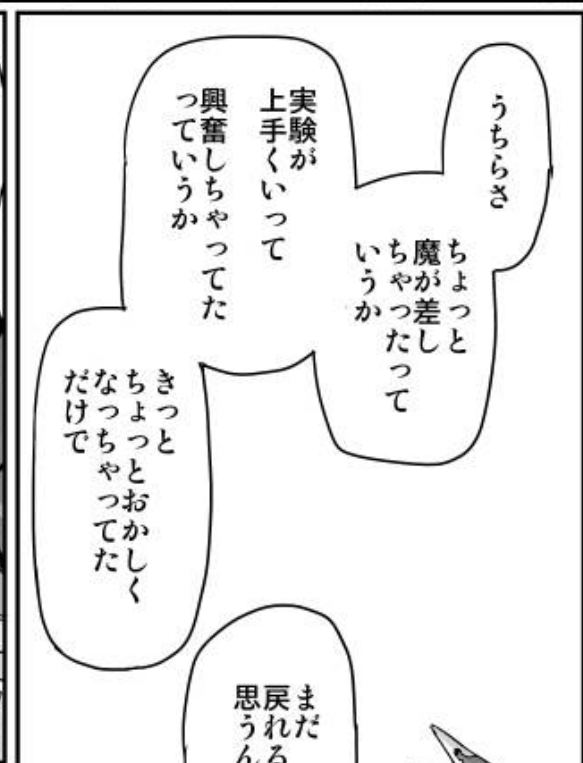 うちらさ
ちょっと
魔が差し
ちゃったって
いうか
実験が
上手くいって
興奮しちゃってた
っていうか
きっと
ちょっとおかしく
なっちゃってた
だけで
まだ
戻れる
思うん